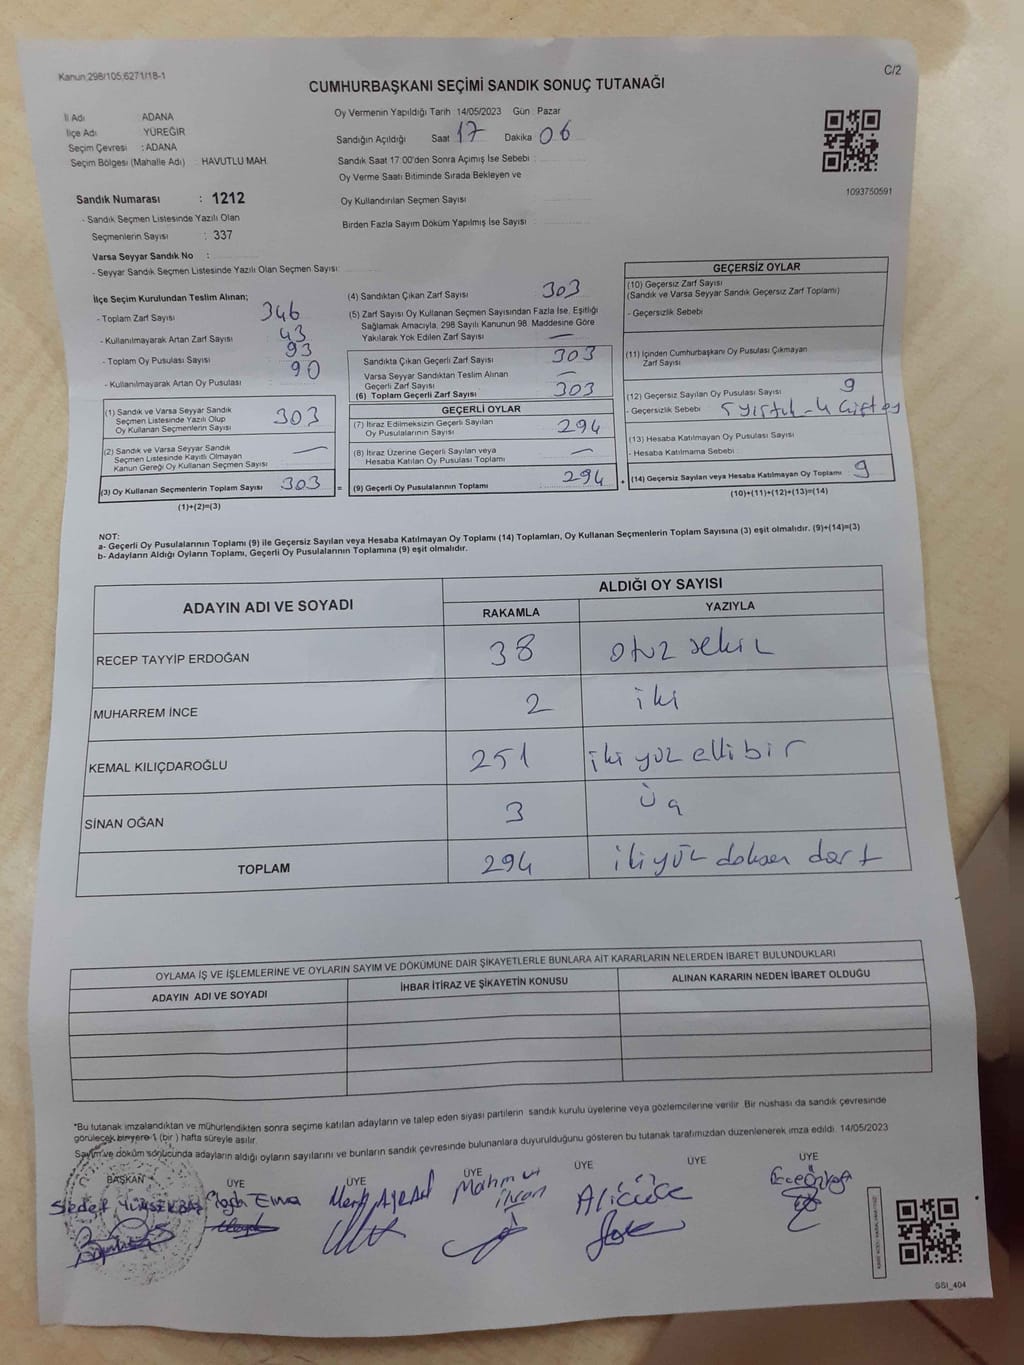 Kanun:298/105;6271/18-1
C/2
CUMHURBAŞKANI SEÇİMİ SANDIK SONUÇ TUTANAĞI
İl Adı ADANA
İlçe Adı YÜREĞİR
Seçim Çevresi : ADANA
Seçim Bölgesi (Mahalle Adı) : HAVUTLU MAH.
Oy Vermenin Yapıldığı Tarih 14/05/2023 Gün : Pazar
Sandığın Açıldığı Saat 17 Dakika 06
Sandık Saat 17:00'den Sonra Açımış İse Sebebi :
Oy Verme Saati Bitiminde Sırada Bekleyen ve
Oy Kullandırılan Seçmen Sayısı
Birden Fazla Sayım Döküm Yapılmış İse Sayısı
1093750591
Sandık Numarası : 1212
- Sandık Seçmen Listesinde Yazılı Olan
Seçmenlerin Sayısı : 337
Varsa Seyyar Sandık No :
- Seyyar Sandık Seçmen Listesinde Yazılı Olan Seçmen Sayısı:
İlçe Seçim Kurulundan Teslim Alınan;
- Toplam Zarf Sayısı 346
- Kullanılmayarak Artan Zarf Sayısı 43
- Toplam Oy Pusulası Sayısı 93
- Kullanılmayarak Artan Oy Pusulası 90
(1) Sandık ve Varsa Seyyar Sandık
Seçmen Listesinde Yazılı Olup
Oy Kullanan Seçmenlerin Sayısı 303
(2) Sandık ve Varsa Seyyar Sandık
Seçmen Listesinde Kayıtlı Olmayan
Kanun Gereği Oy Kullanan Seçmen Sayısı —
(3) Oy Kullanan Seçmenlerin Toplam Sayısı 303 =
(1)+(2)=(3)
(4) Sandıktan Çıkan Zarf Sayısı 303
(5) Zarf Sayısı Oy Kullanan Seçmen Sayısından Fazla İse, Eşitliği
Sağlamak Amacıyla, 298 Sayılı Kanunun 98. Maddesine Göre
Yakılarak Yok Edilen Zarf Sayısı —
Sandıkta Çıkan Geçerli Zarf Sayısı 303
Varsa Seyyar Sandıktan Teslim Alınan
Geçerli Zarf Sayısı —
(6) Toplam Geçerli Zarf Sayısı 303
GEÇERLİ OYLAR
(7) İtiraz Edilmeksizin Geçerli Sayılan
Oy Pusulalarının Sayısı 294
(8) İtiraz Üzerine Geçerli Sayılan veya
Hesaba Katılan Oy Pusulası Toplamı —
(9) Geçerli Oy Pusulalarının Toplamı 294 +
GEÇERSİZ OYLAR
(10) Geçersiz Zarf Sayısı
(Sandık ve Varsa Seyyar Sandık Geçersiz Zarf Toplamı)
- Geçersizlik Sebebi
(11) İçinden Cumhurbaşkanı Oy Pusulası Çıkmayan
Zarf Sayısı
(12) Geçersiz Sayılan Oy Pusulası Sayısı 9
- Geçersizlik Sebebi 5 yırtık - 4 çift oy
(13) Hesaba Katılmayan Oy Pusulası Sayısı
- Hesaba Katılmama Sebebi
(14) Geçersiz Sayılan veya Hesaba Katılmayan Oy Toplamı 9
(10)+(11)+(12)+(13)=(14)
NOT:
a- Geçerli Oy Pusulalarının Toplamı (9) ile Geçersiz Sayılan veya Hesaba Katılmayan Oy Toplamı (14) Toplamları, Oy Kullanan Seçmenlerin Toplam Sayısına (3) eşit olmalıdır. (9)+(14)=(3)
b- Adayların Aldığı Oyların Toplamı, Geçerli Oy Pusulalarının Toplamına (9) eşit olmalıdır.
ADAYIN ADI VE SOYADI ALDIĞI OY SAYISI
RAKAMLA YAZIYLA
RECEP TAYYİP ERDOĞAN 38 otuz sekiz
MUHARREM İNCE 2 iki
KEMAL KILIÇDAROĞLU 251 iki yüz ellibir
SİNAN OĞAN 3 üç
TOPLAM 294 iki yüz doksan dört
OYLAMA İŞ VE İŞLEMLERİNE VE OYLARIN SAYIM VE DÖKÜMÜNE DAİR ŞİKAYETLERLE BUNLARA AİT KARARLARIN NELERDEN İBARET BULUNDUKLARI
ADAYIN ADI VE SOYADI İHBAR İTİRAZ VE ŞİKAYETİN KONUSU ALINAN KARARIN NEDEN İBARET OLDUĞU
*Bu tutanak imzalandıktan ve mühürlendikten sonra seçime katılan adayların ve talep eden siyasi partilerin sandık kurulu üyelerine veya gözlemcilerine verilir. Bir nüshası da sandık çevresinde
görülecek biryere 1 (bir ) hafta süreyle asılır.
Sayım ve döküm sonucunda adayların aldığı oyların sayılarını ve bunların sandık çevresinde bulunanlara duyurulduğunu gösteren bu tutanak tarafımızdan düzenlenerek imza edildi. 14/05/2023
BAŞKAN ÜYE ÜYE ÜYE ÜYE ÜYE ÜYE
Sedef Mahmut Ali
SSI_404